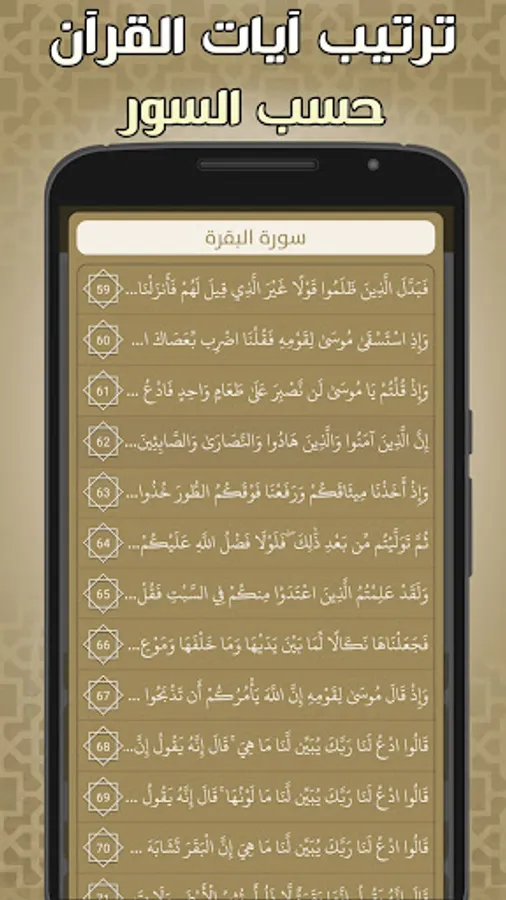 ترتيب آيات القرآن
حسب السور
سورة البقرة
فَبَدَّلَ الَّذِينَ ظَلَمُوا قَوْلًا غَيْرَ الَّذِي قِيلَ لَهُمْ فَأَنزَلْنَا... 59
وَإِذِ اسْتَسْقَىٰ مُوسَىٰ لِقَوْمِهِ فَقُلْنَا اضْرِب بِّعَصَاكَ ا... 60
وَإِذْ قُلْتُمْ يَا مُوسَىٰ لَن نَّصْبِرَ عَلَىٰ طَعَامٍ وَاحِدٍ فَادْعُ ... 61
إِنَّ الَّذِينَ آمَنُوا وَالَّذِينَ هَادُوا وَالنَّصَارَىٰ وَالصَّابِئِينَ... 62
وَإِذْ أَخَذْنَا مِيثَاقَكُمْ وَرَفَعْنَا فَوْقَكُمُ الطُّورَ خُذُوا... 63
ثُمَّ تَوَلَّيْتُم مِّن بَعْدِ ذَٰلِكَ ۖ فَلَوْلَا فَضْلُ اللَّهِ عَلَيْكُمْ... 64
وَلَقَدْ عَلِمْتُمُ الَّذِينَ اعْتَدَوْا مِنكُمْ فِي السَّبْتِ فَقُلْ... 65
فَجَعَلْنَاهَا نَكَالًا لِّمَا بَيْنَ يَدَيْهَا وَمَا خَلْفَهَا وَمَوْعِ... 66
وَإِذْ قَالَ مُوسَىٰ لِقَوْمِهِ إِنَّ اللَّهَ يَأْمُرُكُمْ أَن تَذْبَحُوا ... 67
قَالُوا ادْعُ لَنَا رَبَّكَ يُبَيِّن لَّنَا مَا هِيَ ۚ قَالَ إِنَّهُ يَقُولُ إِنَّ... 68
قَالُوا ادْعُ لَنَا رَبَّكَ يُبَيِّن لَّنَا مَا لَوْنُهَا ۚ قَالَ إِنَّهُ يَقُولُ ... 69
قَالُوا ادْعُ لَنَا رَبَّكَ يُبَيِّن لَّنَا مَا هِيَ إِنَّ الْبَقَرَ تَشَابَهَ ... 70